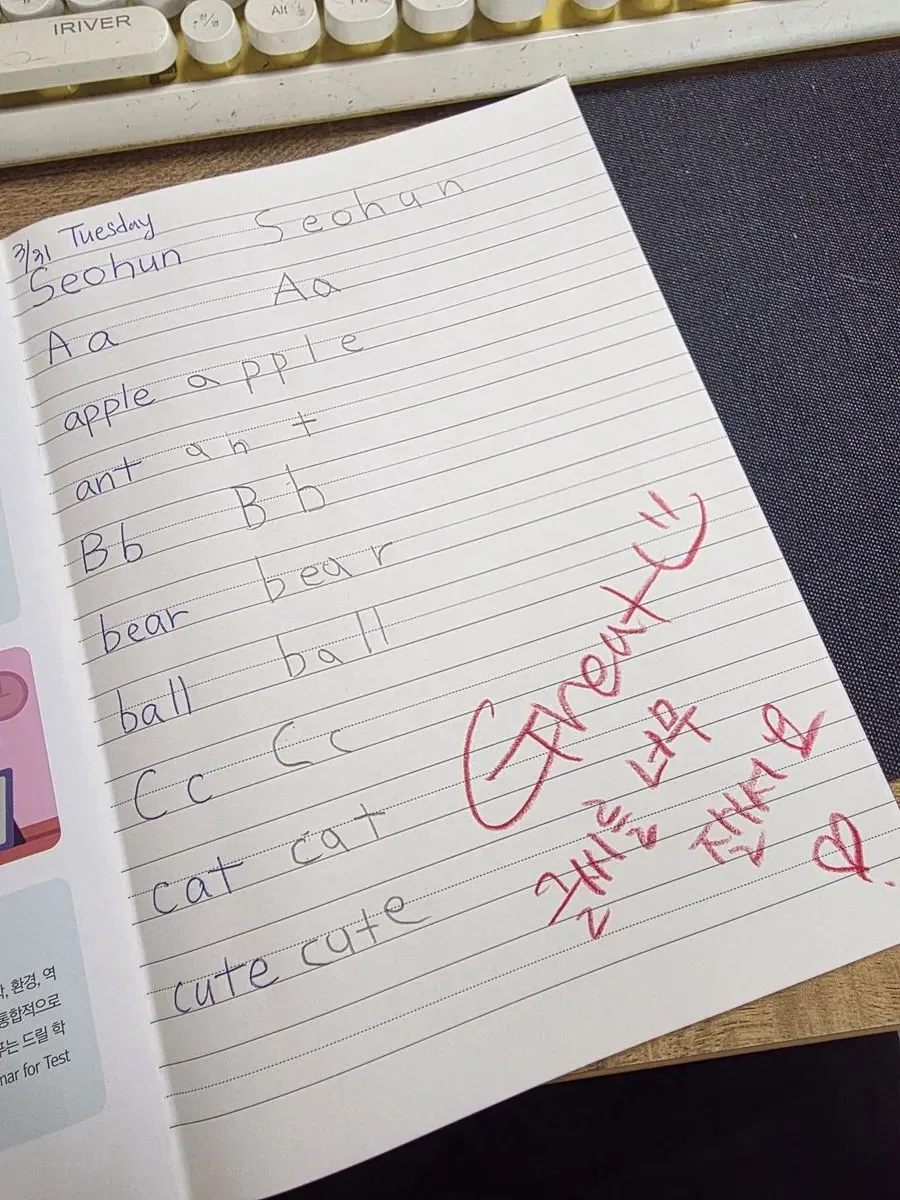 IRIVER
한/영
Alt
3/31 Tuesday
Seohun Seohun
Aa Aa
apple apple
ant ant
Bb Bb
bear bear
ball ball
Cc Cc
cat cat
cute cute
Great
글씨를 너무
잘써요
환경, 역
통합적으로
드릴 학
mar for Test